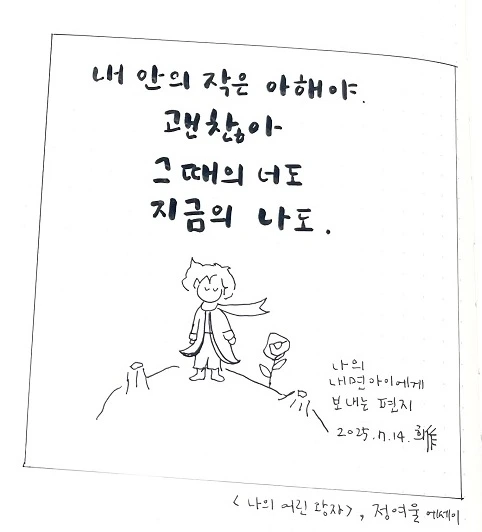 내 안의 작은 아해야.
괜찮아
그 때의 너도
지금의 나도.
나의
내면아이에게
보내는 편지
2025.7.14.
<나의 어린 왕자>, 정여울 에세이